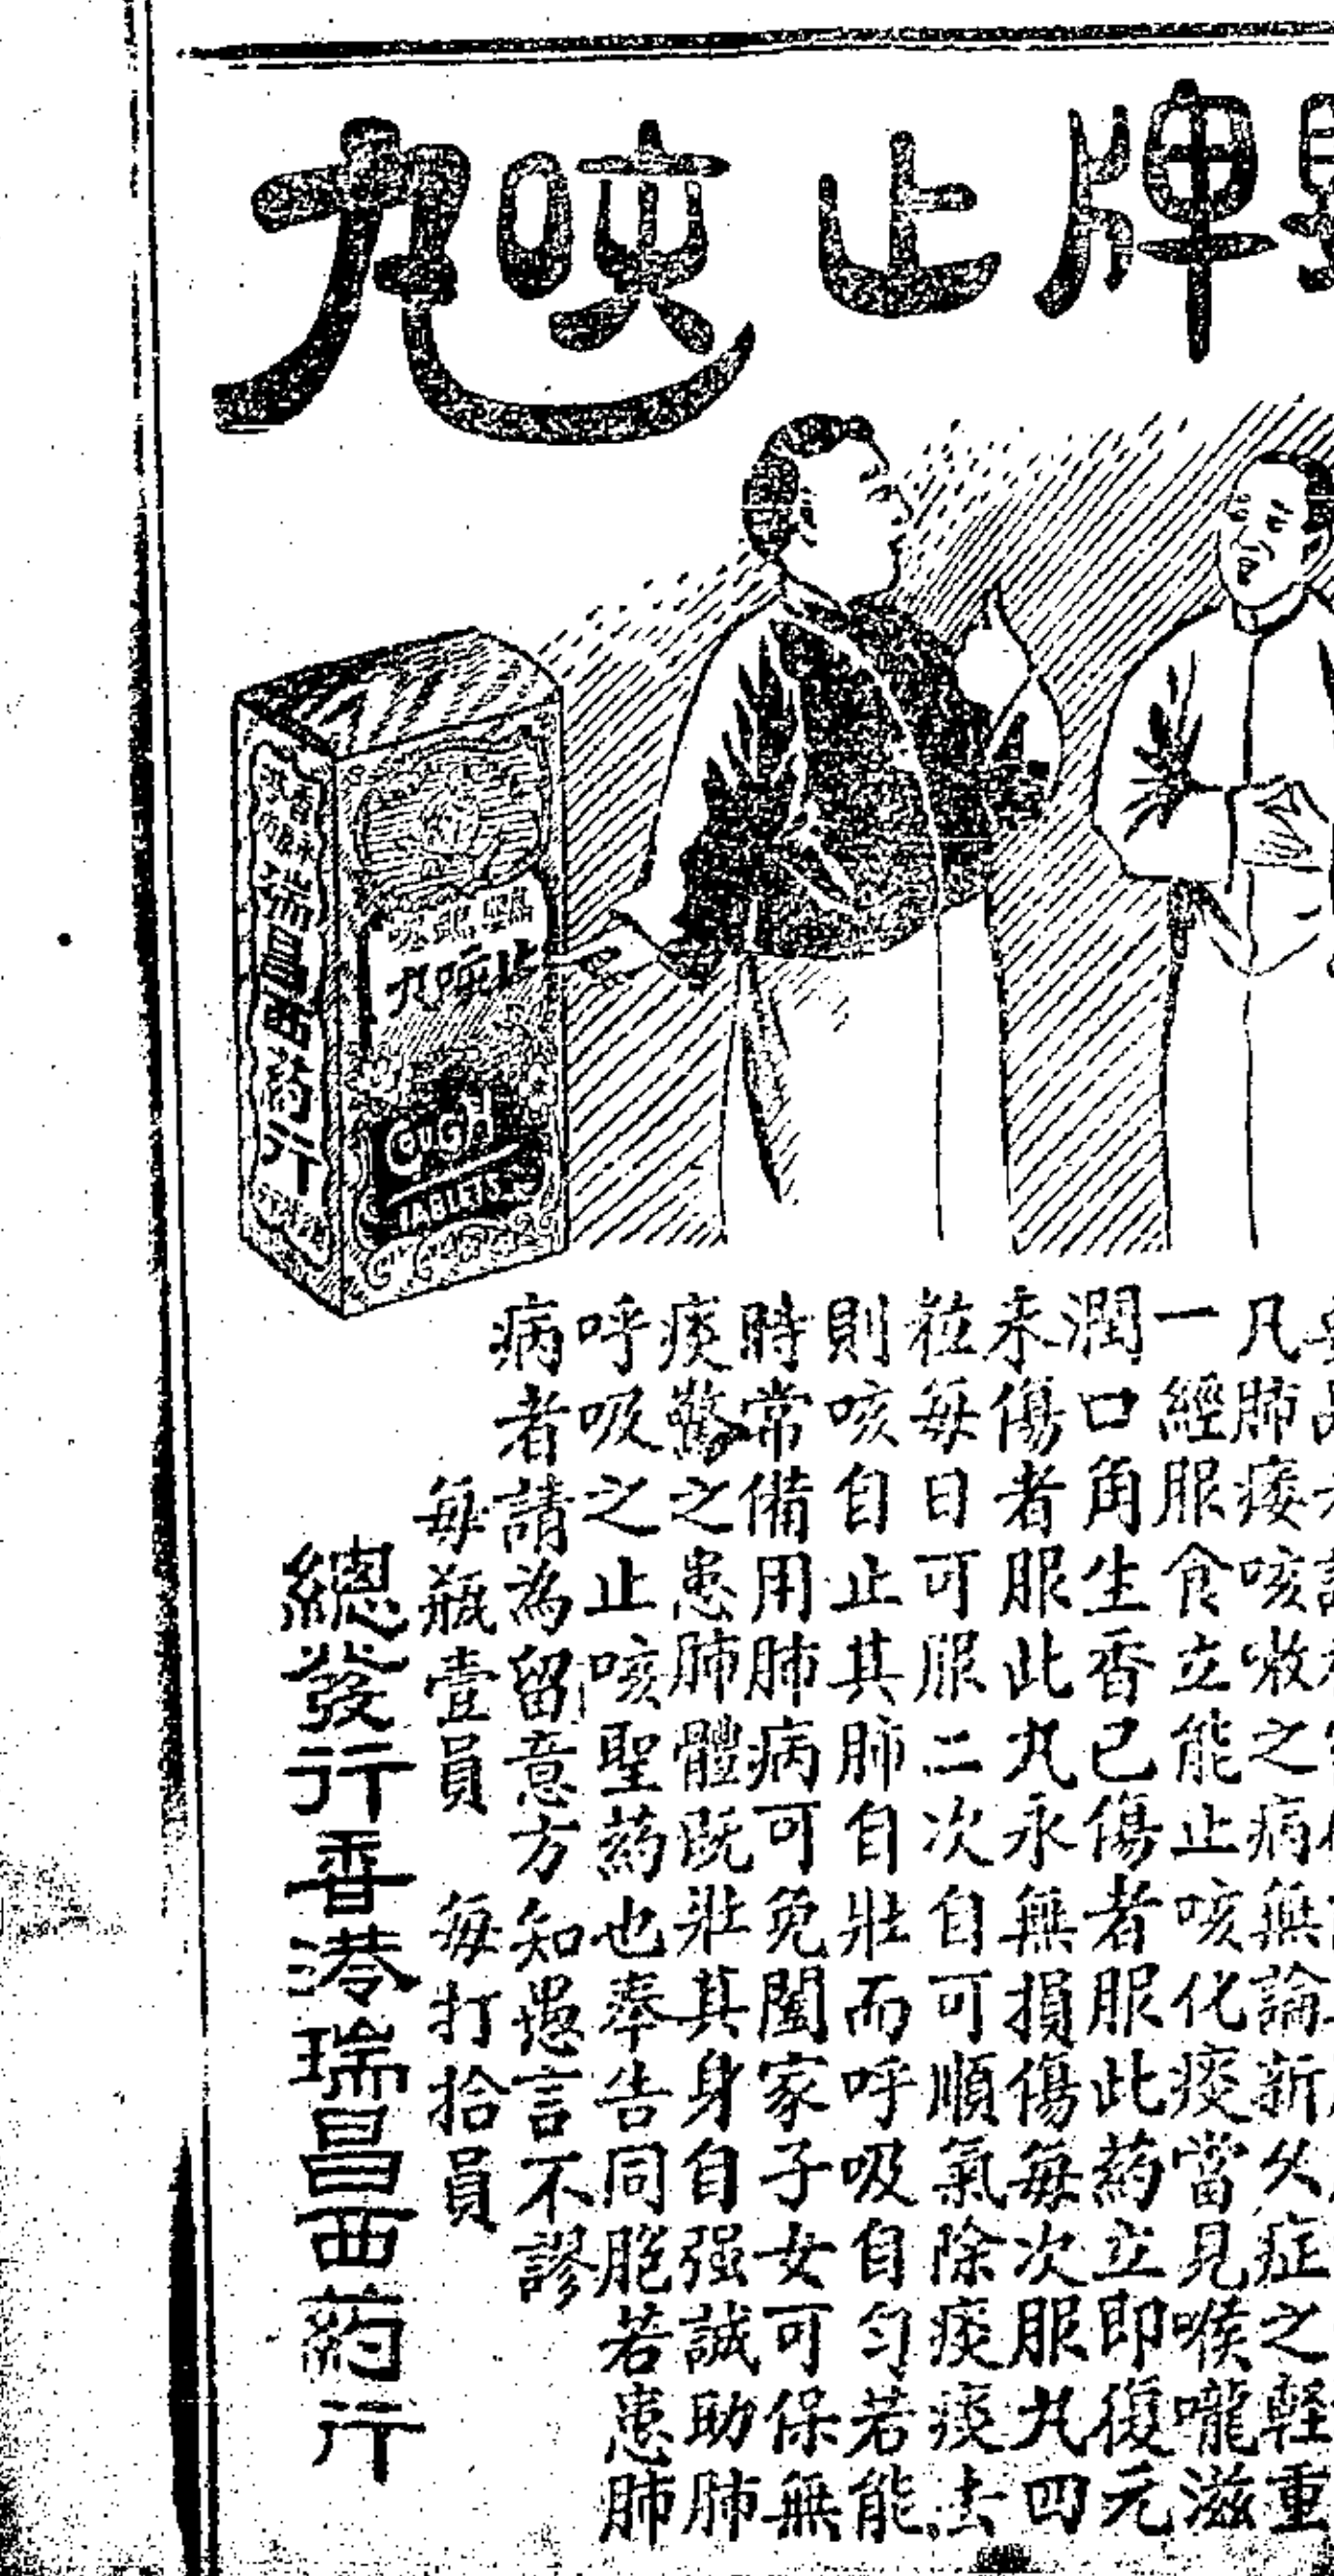 牌止咳丸
瑞昌西葯行
止咳丸
COUGH
TABLETS
凡肺痿咳嗽之病無論新久症之軽重
一經服食立能止咳化痰當見喉嚨滋
潤口角生香已傷者服此葯立即復元
未傷者服此丸永無損傷每次服丸四
粒每日可服二次自可順氣除痰痰去
則咳自止其肺自壯而呼吸自勻若能
時常備用肺病可免闔家子女可保無
痰驚之患肺體既壯其身自强誠助肺
呼吸之止咳聖葯也奉告同胞若患肺
病者請為留意方知愚言不謬
每瓶壹員 每打拾員
總發行香港瑞昌西葯行